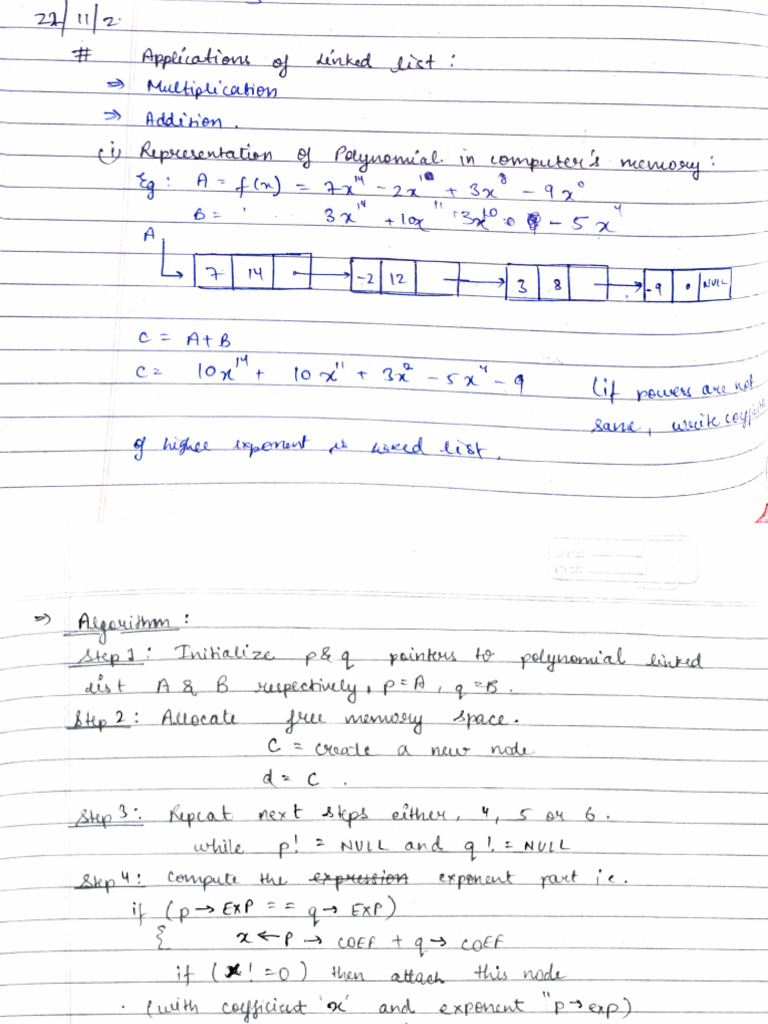 22/11/2
# Applications of Linked list :
⇒ Multiplication
⇒ Addition.
(i) Representation of Polynomial in computer's memory :
Eg : A = f(x) = 7x¹⁴ - 2x¹⁰ + 3x⁸ - 9x⁰
B = 3x¹⁴ + 10x¹¹ + 3x¹⁰ - 5x⁴
A
7 14 -2 12 3 8 -9 NULL
C = A+B
C = 10x¹⁴ + 10x¹¹ + 3x² - 5x⁴ - 9 (if powers are not
same, write
of higher exponent is linked list.
⇒ Algorithm :
Step 1 : Initialize p & q pointers to polynomial linked
list A & B respectively, p = A, q = B.
Step 2 : Allocate free memory space.
C = create a new node
d = C.
Step 3 : Repeat next steps either, 4, 5 or 6.
while p != NULL and q != NULL
Step 4 : Compute the expression exponent part i.e.
if (p → EXP == q → EXP)
{ x ← P → COEF + q → COEF
if (x != 0) then attach this node
(with coefficient 'x' and exponent "p → exp)